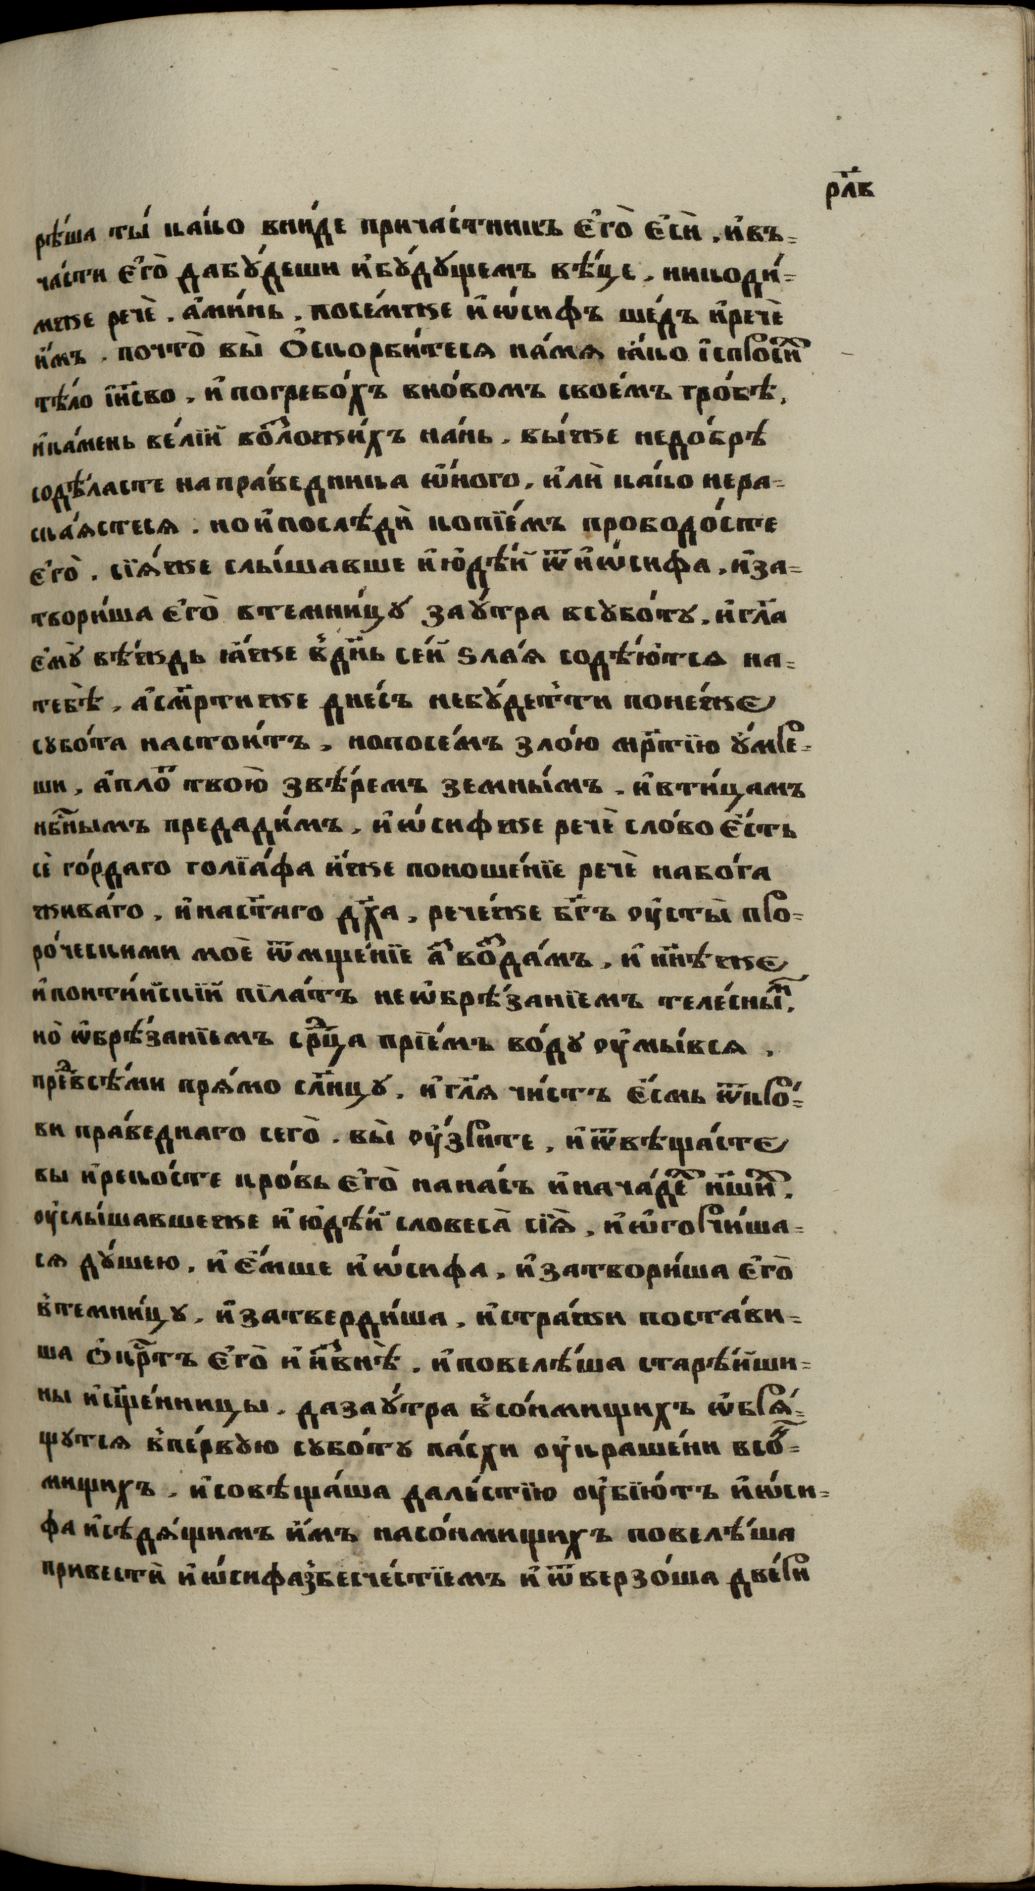 рл҃в
рѣ́ша ты̀ ка́ко вни́де прича́стникъ є҆го̀ є҆сѝ, и҆въ=
ча́сти є҆го̀ дабꙋ́деши и҆бꙋ́дꙋщемъ вѣ́це, никоди́=
мъже речѐ, а҆ми́нь, посе́мъже и҆ѡ҆сифъ ше́дъ и҆речѐ
и҆́мъ, почто̀ вы̀ ѻ҆скорби́тесѧ на́мѧ ꙗ҆́ко и҆спроси́х
тѣ́ло і҆и҃сво, и҆ погребо́хъ вно́вомъ свое́мъ гро́бѣ,
и҆ка́мень ве́лїй возложи́хъ на́нь, вы́же недо́брѣ
содѣ́ласте напра́ведника ѡ҆́ного, и҆лѝ ка́ко нера=
ска́ѧстесѧ, но и҆послѣдѝ копїе́мъ пробо́досте
є҆го̀, сїѧ́же слы́шавше и҆ю҆дѣ́й ѿ и҆ѡ҆́сифа, и҆за=
твори́ша є҆го̀ втемни́цꙋ заꙋ́тра всꙋбо́тꙋ, и҆гл҃а
є҆мꙋ̀ вѣ́ждь ꙗ҆́же в дн҃ь се́й ѕла́ѧ содѣ́ютсѧ на=
тебѣ̀, а҆сме́ртиже дне́сь небꙋ́детти поне́же
сꙋбо́та настои́тъ, попосе́мъ зло́ю мр҃тїю ᲂу҆́мре=
ши, а҆пло́т твою̀ звѣ́ремъ земны́мъ, и҆вти́цамъ
нб҃нымъ предади́мъ, и҆ѡ҆́сифже речѐ сло́во є҆́сть
сѐ го́рдаго голїа́фа и҆́же поноше́нїе речѐ набо́га
жива́го, и҆наст҃аго дх҃а, рече́же бг҃ъ ᲂу҆сты̀ про=
ро́ческими моѐ ѿмще́нїе а҆́з возда́мъ, и҆ нн҃ѣже
и҆понти́йскїй пїла́тъ неѡ҆брѣ́занїемъ теле́сным,
но̀ ѡ҆брѣ́занїемъ ср҃дца прїе́мъ во́дꙋ ᲂу҆мы́всѧ,
предвсѣ́ми прѧ́мо сл҃нцꙋ, и҆ гл҃ѧ чи́стъ є҆́смь ѿкро́=
ви пра́веднаго сего̀, вы̀ ᲂу҆́зрите, и҆ ѿвѣща́сте
вы и҆реко́сте кро́вь є҆го̀ нана́съ и҆ нача́дех на́ших,
ᲂу҆слы́шавшеже и҆ю҆дѣ́й словеса̀ сїѧ̀, и҆ѡ҆горчи́ша=
сѧ дꙋ́шею, и҆ є҆́мше и҆ѡ҆сифа, и҆ затвори́ша є҆го̀
в темни́цꙋ, и҆ затверди́ша, и҆стра́жи поста́ви=
ша ѻ҆́крстъ є҆го̀ и҆и҆звнѣ̀, и҆повелѣ́ша старѣ́йши=
ны и҆сщ҃е́нницы, дазаꙋ́тра в со́нмищихъ ѡ҆брѧ́=
щꙋтсѧ в пе́рвꙋю сꙋбо́тꙋ па́схи ᲂу҆краше́ни всо́н=
мищихъ, и҆совѣща́ша дале́стїю ᲂу҆бїю́тъ и҆ѡ҆си=
фа и҆сѣдѧ́щимъ и҆́мъ насо́нмищихъ повелѣ́ша
привестѝ и҆ѡ҆́сифаз бесче́стїемъ и҆ ѿверзо́ша две́ри